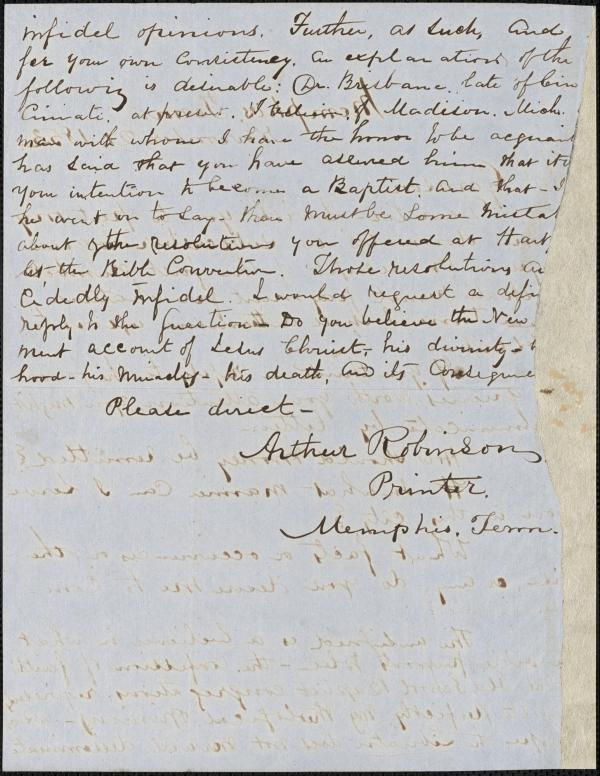 infidel opinions. Further, as such, and
for your own consistency. An explanation of the
following is desirable: Dr. Brisbane, late of Cin
cinnati, at present, I believe, of Madison. Mich.
man with whom I have the honor to be acquain
has said that you have assured him that it
your intention to become a Baptist. And that – I
he went on to say – there must be some mista
about the resolutions you offered at Hart
at the Bible Convention. Those resolutions a
cidedly infidel. I would request a defi
reply to the question – Do you believe the New
ment account of Jesus Christ, his divinity –
hood – his miracles – his death, and its conseque
Please direct –
Arthur Robinson
Printer.
Memphis. Tenn.